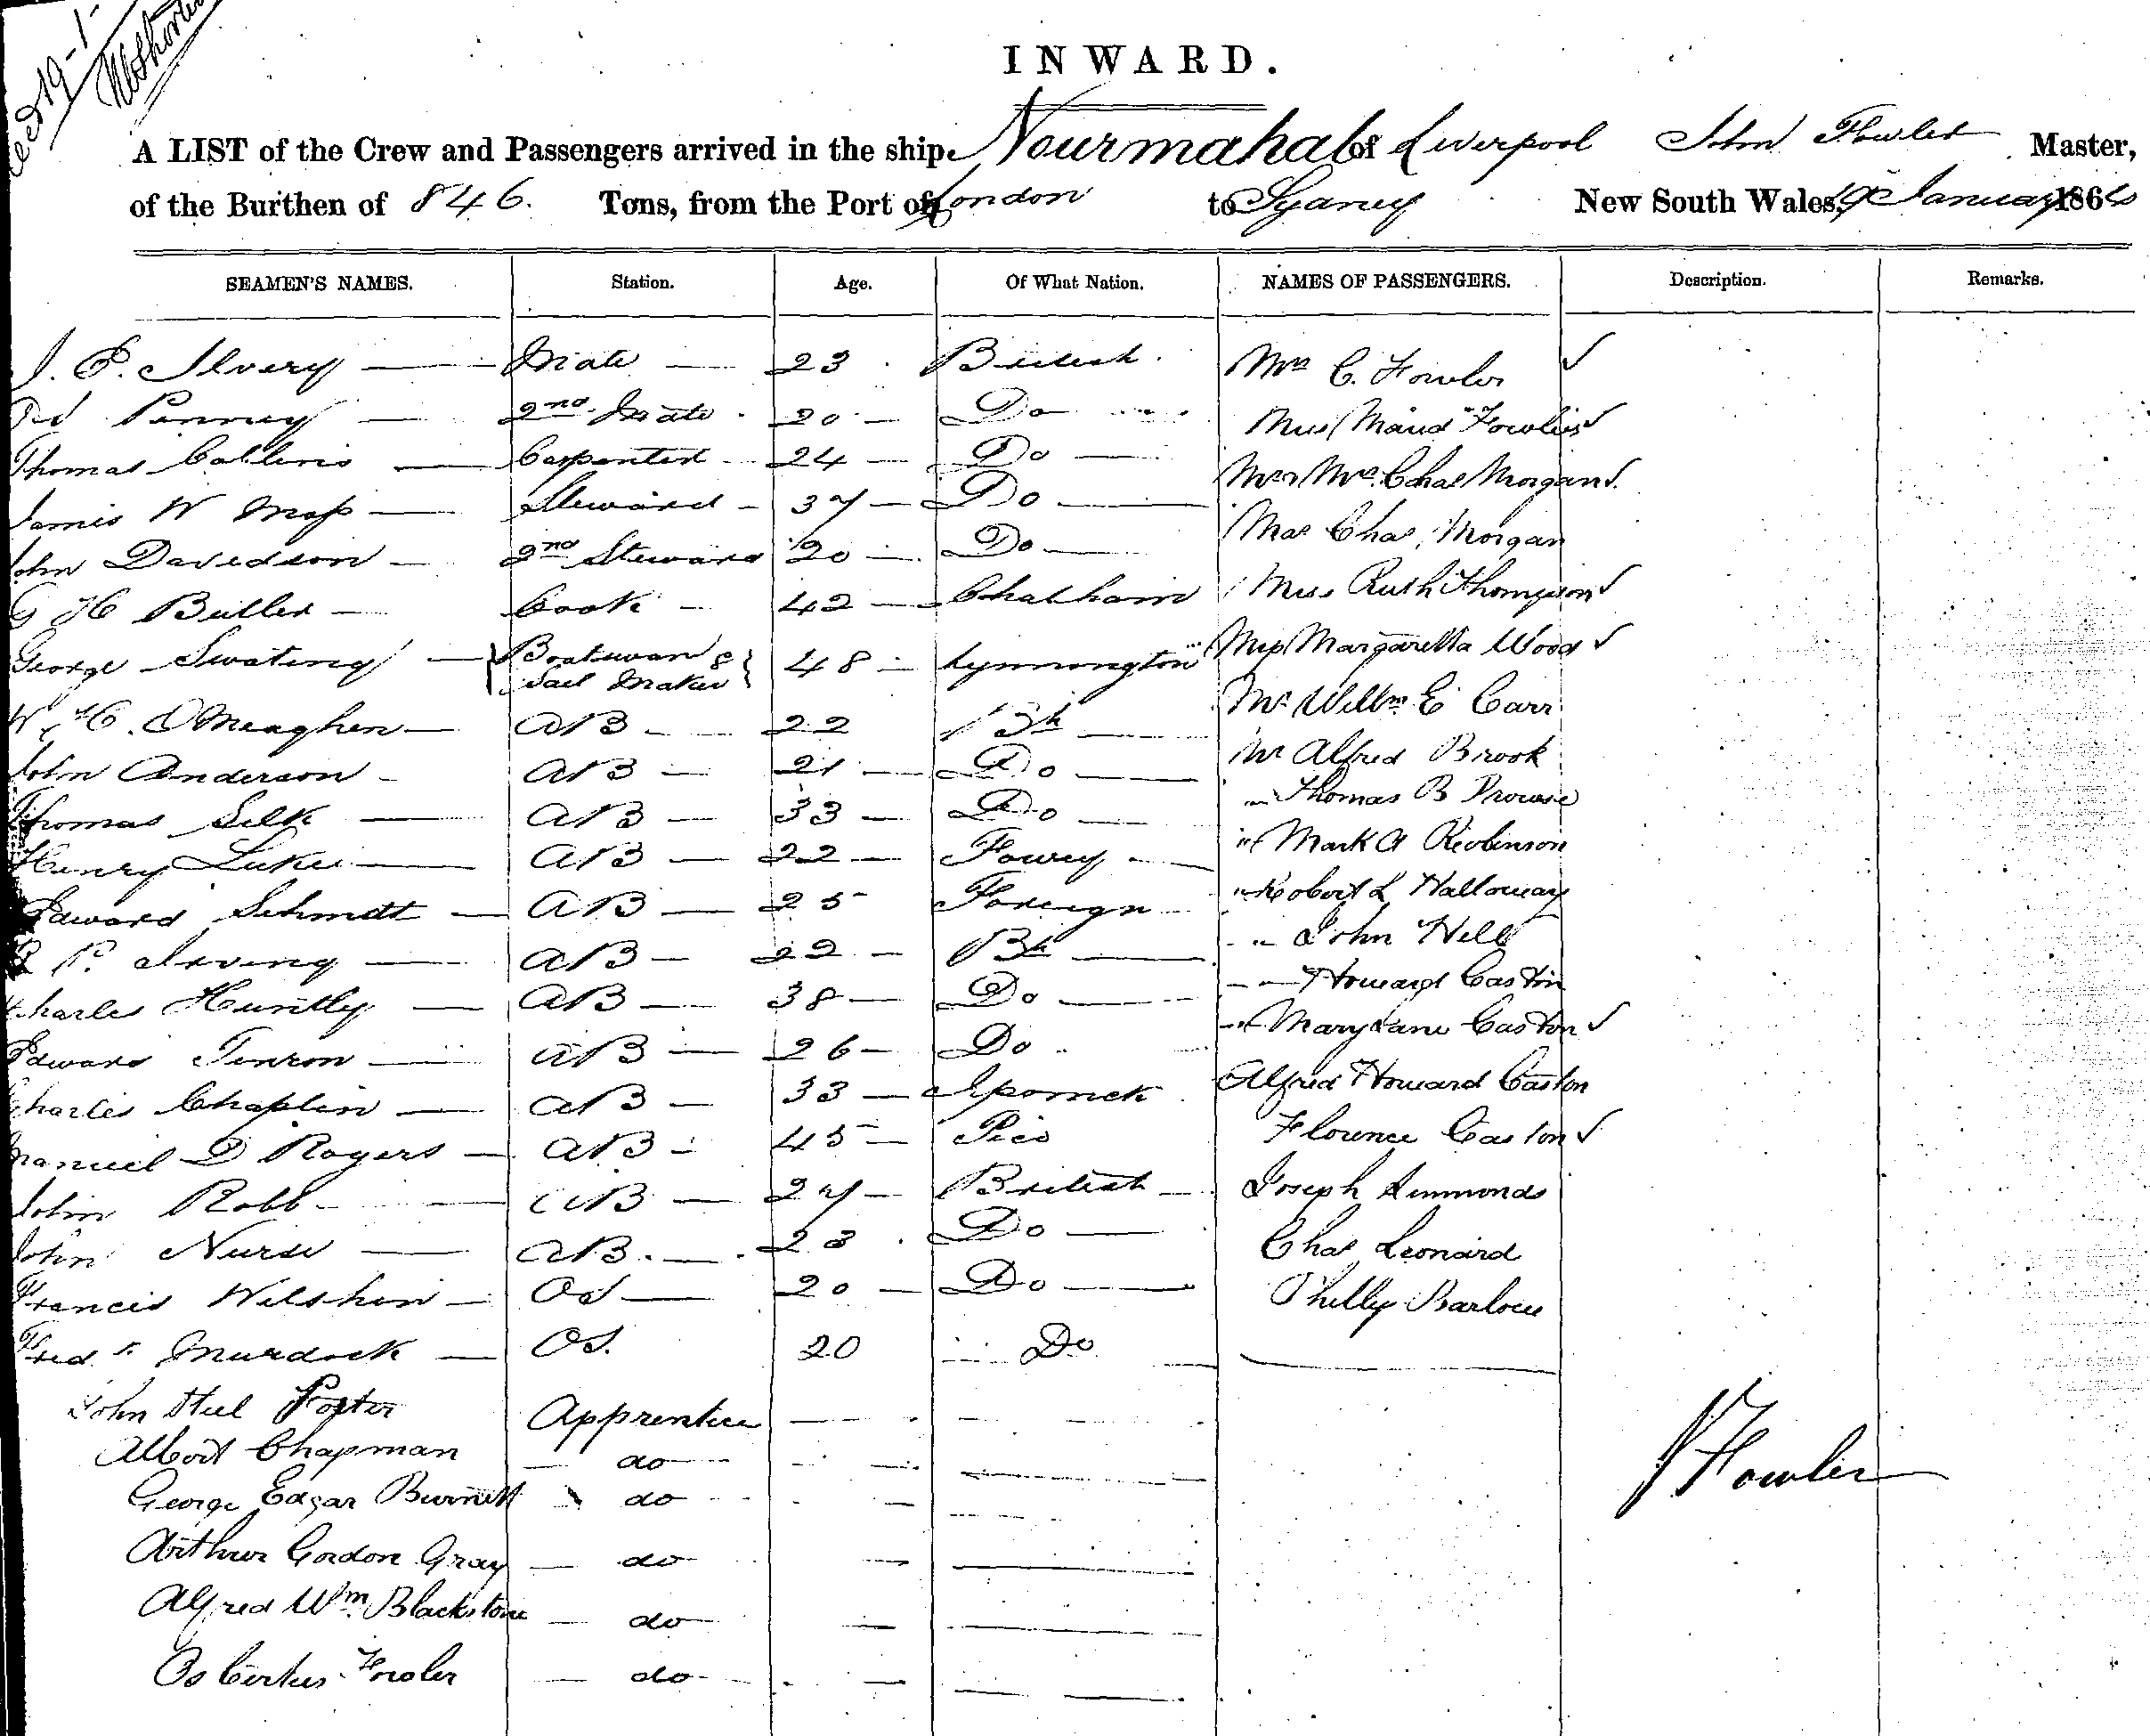 INWARD.
A LIST of the Crew and Passengers arrived in the ship Nourmahal of Liverpool John Fowler Master,
of the Burthen of 846. Tons, from the Port of London to Sydney New South Wales, 19 January 186
SEAMEN'S NAMES. Station. Age. Of What Nation. NAMES OF PASSENGERS. Description. Remarks.
Mate 23 British Mrs C. Fowler ✓
Penney 2nd Mate 20 Do Miss Maud Fowler ✓
Thomas Collins Carpenter 24 Do Mr & Mrs Chas Morgan ✓
James W Moss Steward 37 Do Mas Chas Morgan
John Davidson 2nd Steward 20 Do Miss Ruth Thompson ✓
G H Butler Cook 42 Chatham Miss Margaretta Wood ✓
George Swating Boatswan & Sail Maker 48 Lymmington Mr Willm E Carr
W H. OMeaghen AB 22 Bh Mr Alfred Brook
John Anderson AB 21 Do " Thomas B Prowse
Thomas Silk AB 33 Do " Mark A Robinson
Henry Luke AB 22 Fowey " Robert L Halloway
Edward Schmdt AB 25 Foreign " John Hill
P. Irving AB 22 Bh " Howard Caston
Charles Huntly AB 38 Do " Mary Jane Caston ✓
Edward AB 26 Do Alfred Howard Caston
Charles Chaplin AB 33 Florence Caston ✓
Manuel D Rogers AB 45 Pico Joseph Simmonds
John Robb AB 27 British Chas Leonard
John Nurse AB. 23 Do Philly Barlow
Francis Wilshin OS 20 Do
Fredk Murdock OS. 20 Do
John Steel Foster Apprentice
Albert Chapman do
George Edgar Burnett do
J Fowler
Arthur Gordon Gray do
Alfred Wm Blackstone do
Fowler do